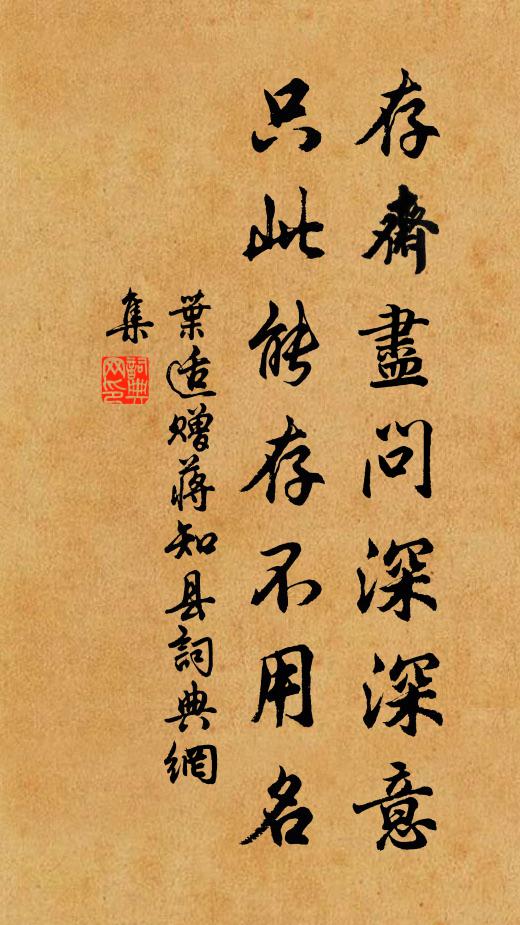 存齋盡問深深意
只此能存不用名
葉适贈蔣知县詞典網
集
詞典
网印